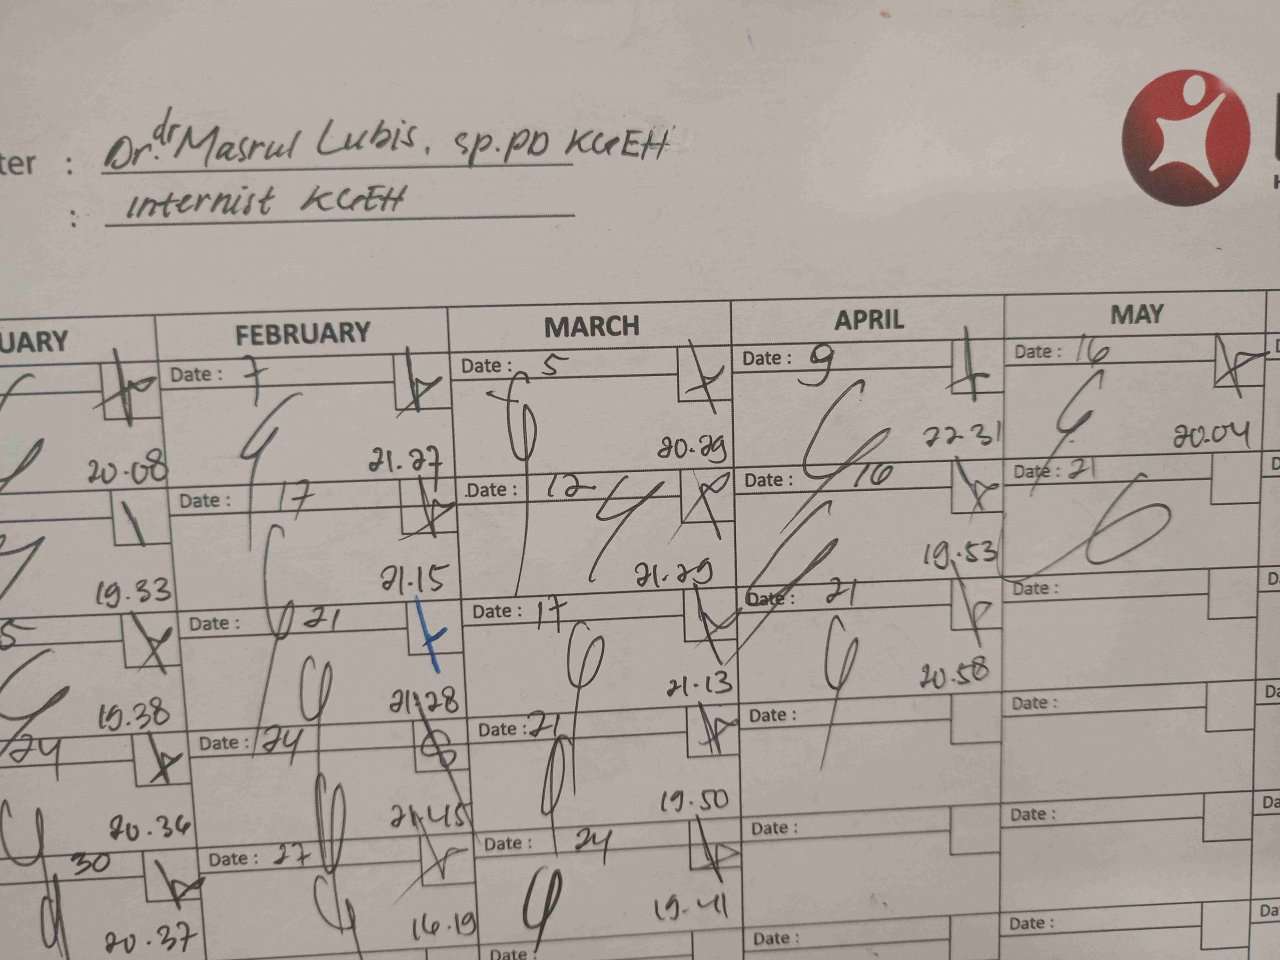 ter : Dr.dr Masrul Lubis, sp.PD KGEH
: Internist KGEH
UARY FEBRUARY MARCH APRIL MAY
Date : 7 Date : 5 Date : 9 Date : 16
20.08 21.27 20.29 22.31 20.04
Date : 17 Date : 12 Date : 16 Date : 21
19.33 21.15 21.29 19.53
5 Date : 21 Date : 17 Date : 21 Date :
19.38 21.28 21.13 20.58
24 Date : 24 Date : 21 Date : Date :
20.36 21.45 19.50
30 Date : 27 Date : 24 Date : Date :
20.37 16.19 19.41
Date : Date : Date :